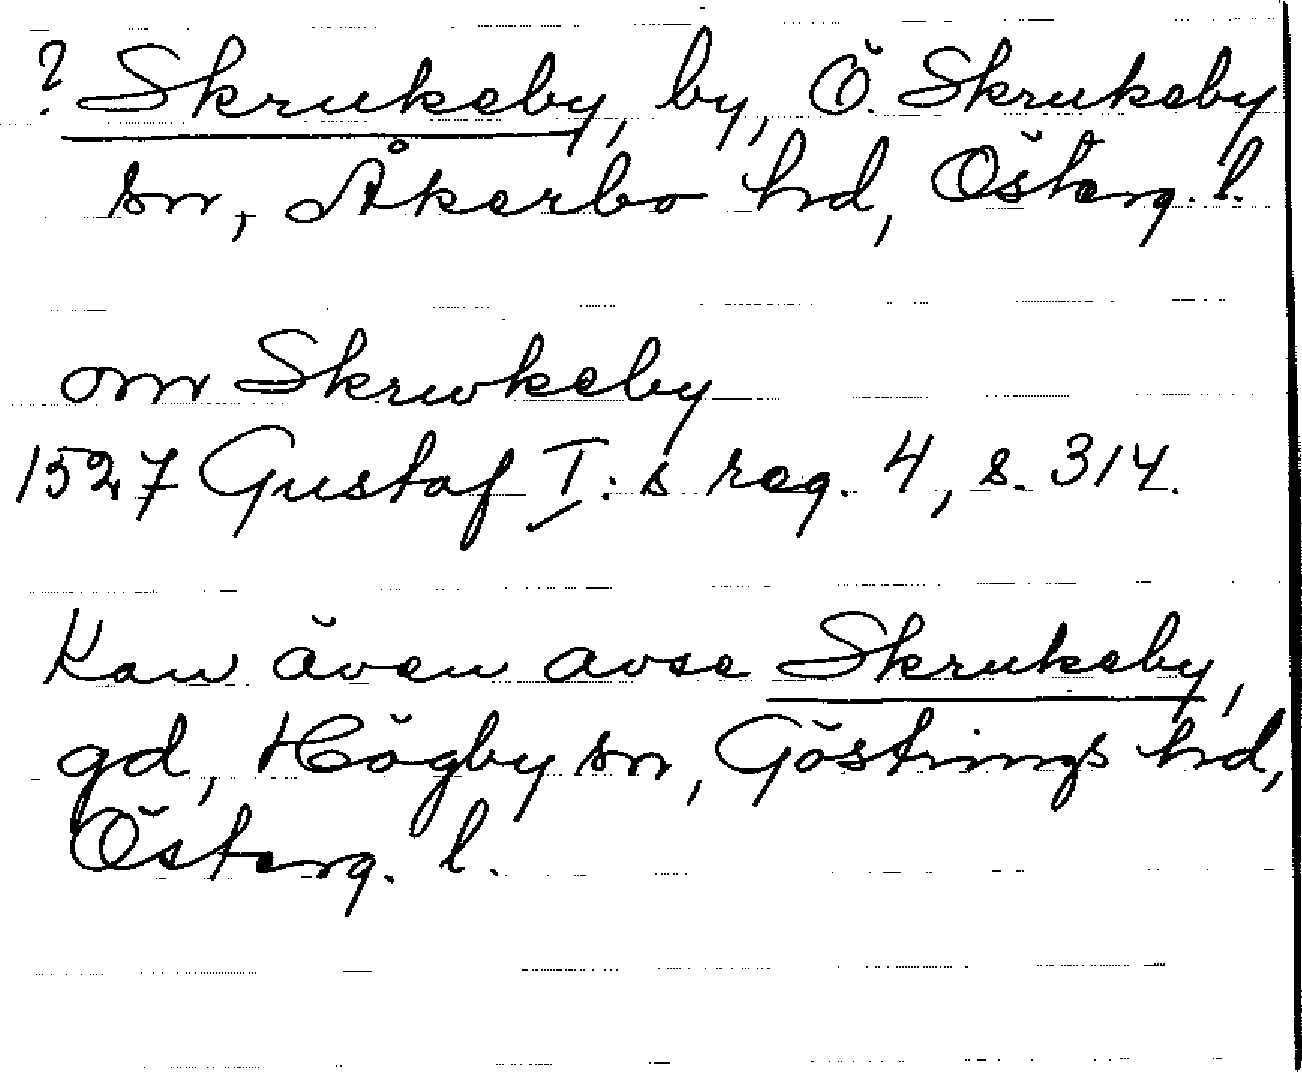 ? Skrukeby, by, Ö. Skrukeby
sn, Åkerbo hd, Österg. l.
om Skrwkeby
1527 Gustaf I:s reg. 4, s. 314.
Kan även avse Skrukeby,
gd, Högby sn, Göstrings hd,
Österg. l.